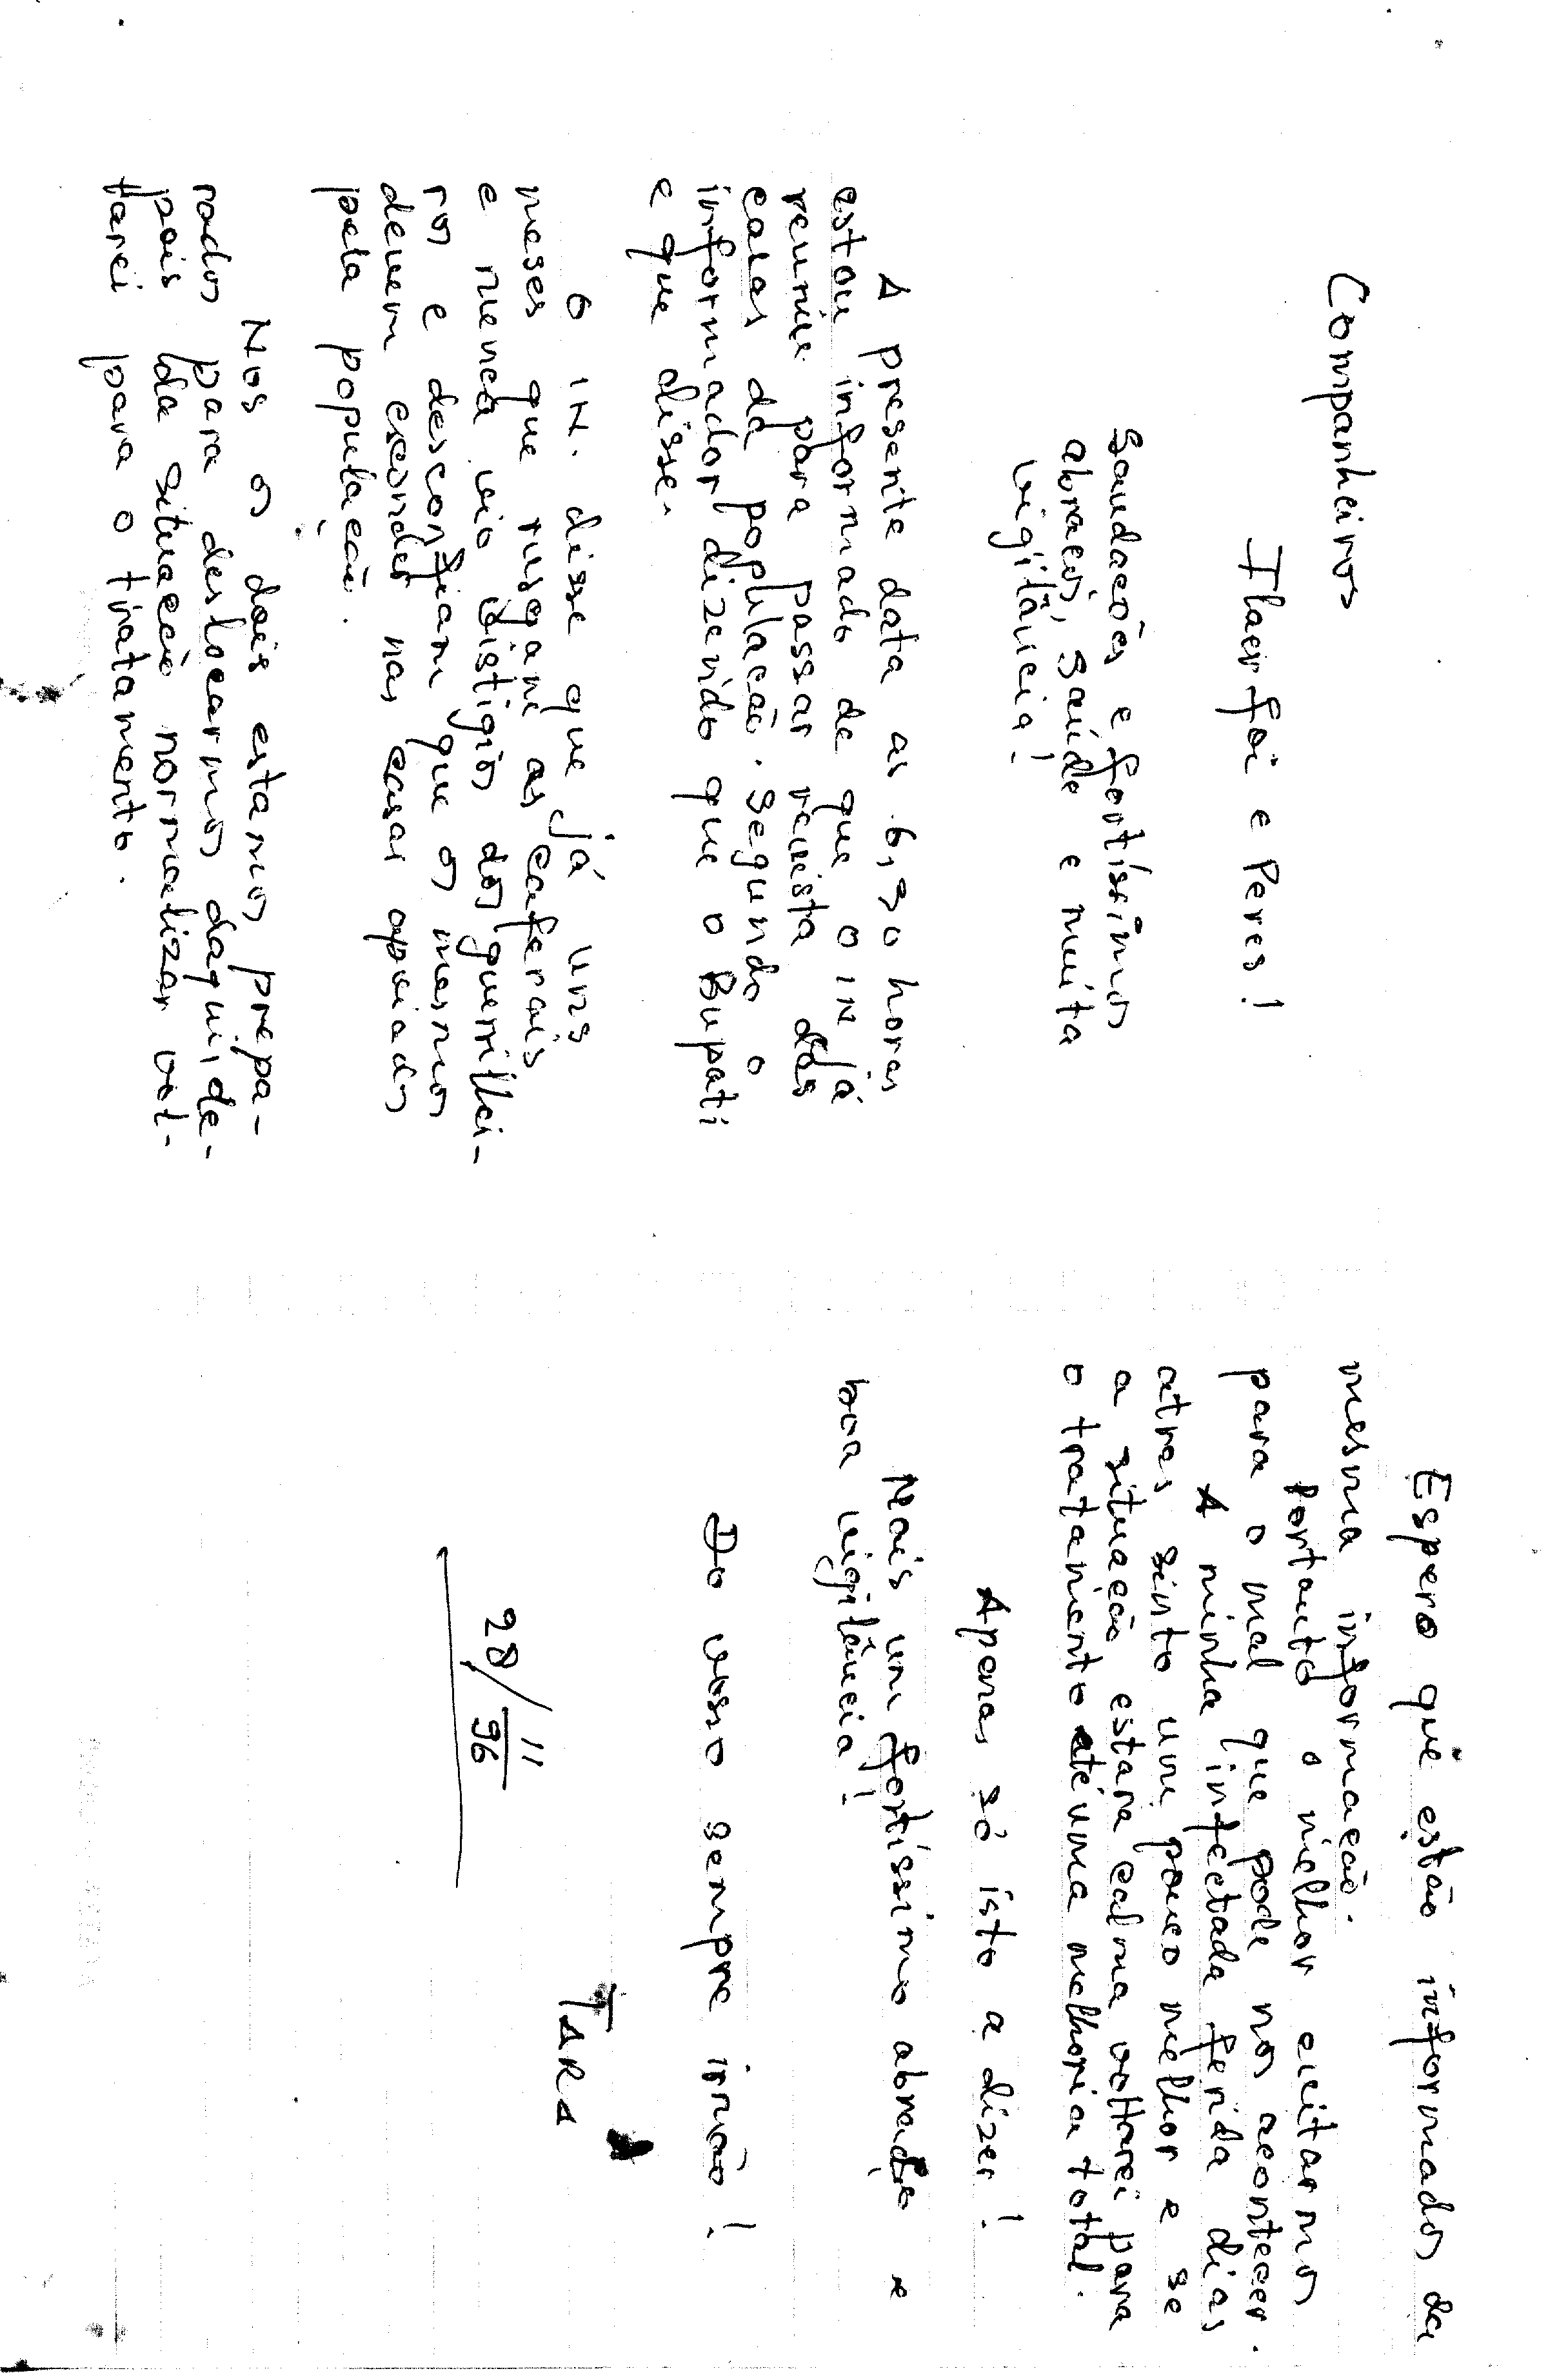 Companheiros
Ilaer foi e Peres!
Saudacões e fortíssimos
abracos, saúde e muita
vigilância!
A presente data as 6,30 horas
estou informado de que o IN já
reuniu para passar revista das
casas da população. Segundo o
informador dizendo que o Bupati
e que disse.
O IN. disse que já uns
meses que rusgam as caferais
e nunca viu vistigios dos guerrilhei-
ros e desconfiam que os mesmos
devem esconder nas casas apoiados
pela população.
Nos os dois estamos prepa-
rados para deslocarmos daqui, de-
pois da situacão normalizar vol-
tarei para o tratamento.
Espero que estão informados da
mesma informacão.
Portanto o melhor evitarmos
para o mal que pode nos acontecer.
A minha infectada ferida dias
atras sinto um pouco melhor e se
a situação estara calma voltarei para
o tratamento até uma melhoria total.
Apenas só isto a dizer!
Mais um fortíssimo abraço e
boa vigilância!
Do vosso sempre irmão!
TARA
28/11/96